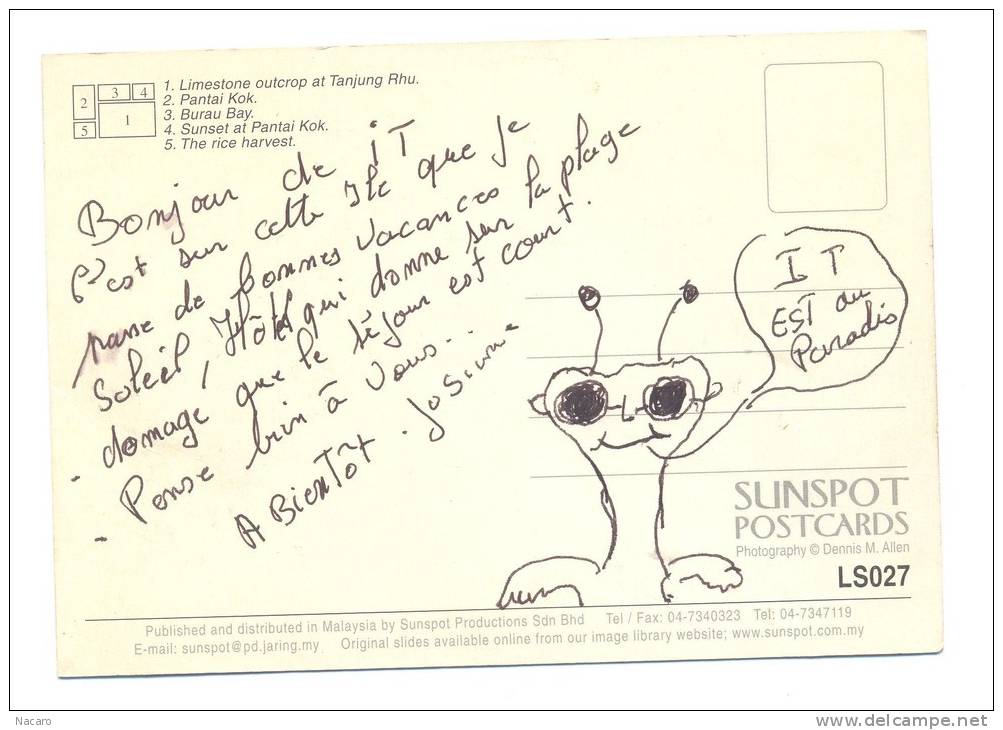 1. Limestone outcrop at Tanjung Rhu.
2. Pantai Kok.
3. Burau Bay.
4. Sunset at Pantai Kok.
5. The rice harvest.
2 3 4
5 1
Bonjour de IT
C'est sur cette Ile que je
passe de bonnes vacances
Soleil, Hôtel qui donne sur la plage
- domage que le séjour est court.
- Pense bien à vous.
A BIENTÔT. Josiane
IT
EST au
Paradis
SUNSPOT
POSTCARDS
Photography © Dennis M. Allen
LS027
Published and distributed in Malaysia by Sunspot Productions Sdn Bhd Tel / Fax: 04-7340323 Tel: 04-7347119
E-mail: sunspot@pd.jaring.my Original slides available online from our image library website; www.sunspot.com.my
Nacaro
www.delcampe.net